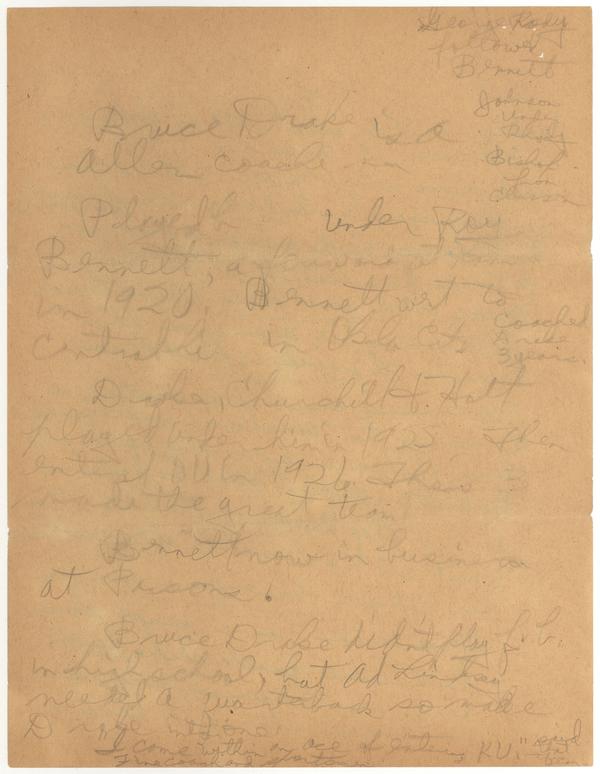 George Rody
follows
Bennett
Johnson
under
Rody
Bishop
from
Bruce Drake is a
Allen coache in
Played under Roy
Bennett, a forward at
in 1920. Bennett went to
Central in Okla City
coached
Drake
3 years.
Drake, Churchill & Holt
played under him in 1925 Then
entered OU in 1926. These 3
made the great team
Bennett now in business
at Parsons.
Bruce Drake didn't play f.b.
in high school, but Ad Lindsey
needed a quarterback so made
Drake into one
"I come within an ace of entering KU," said
Fine coach and sportsman